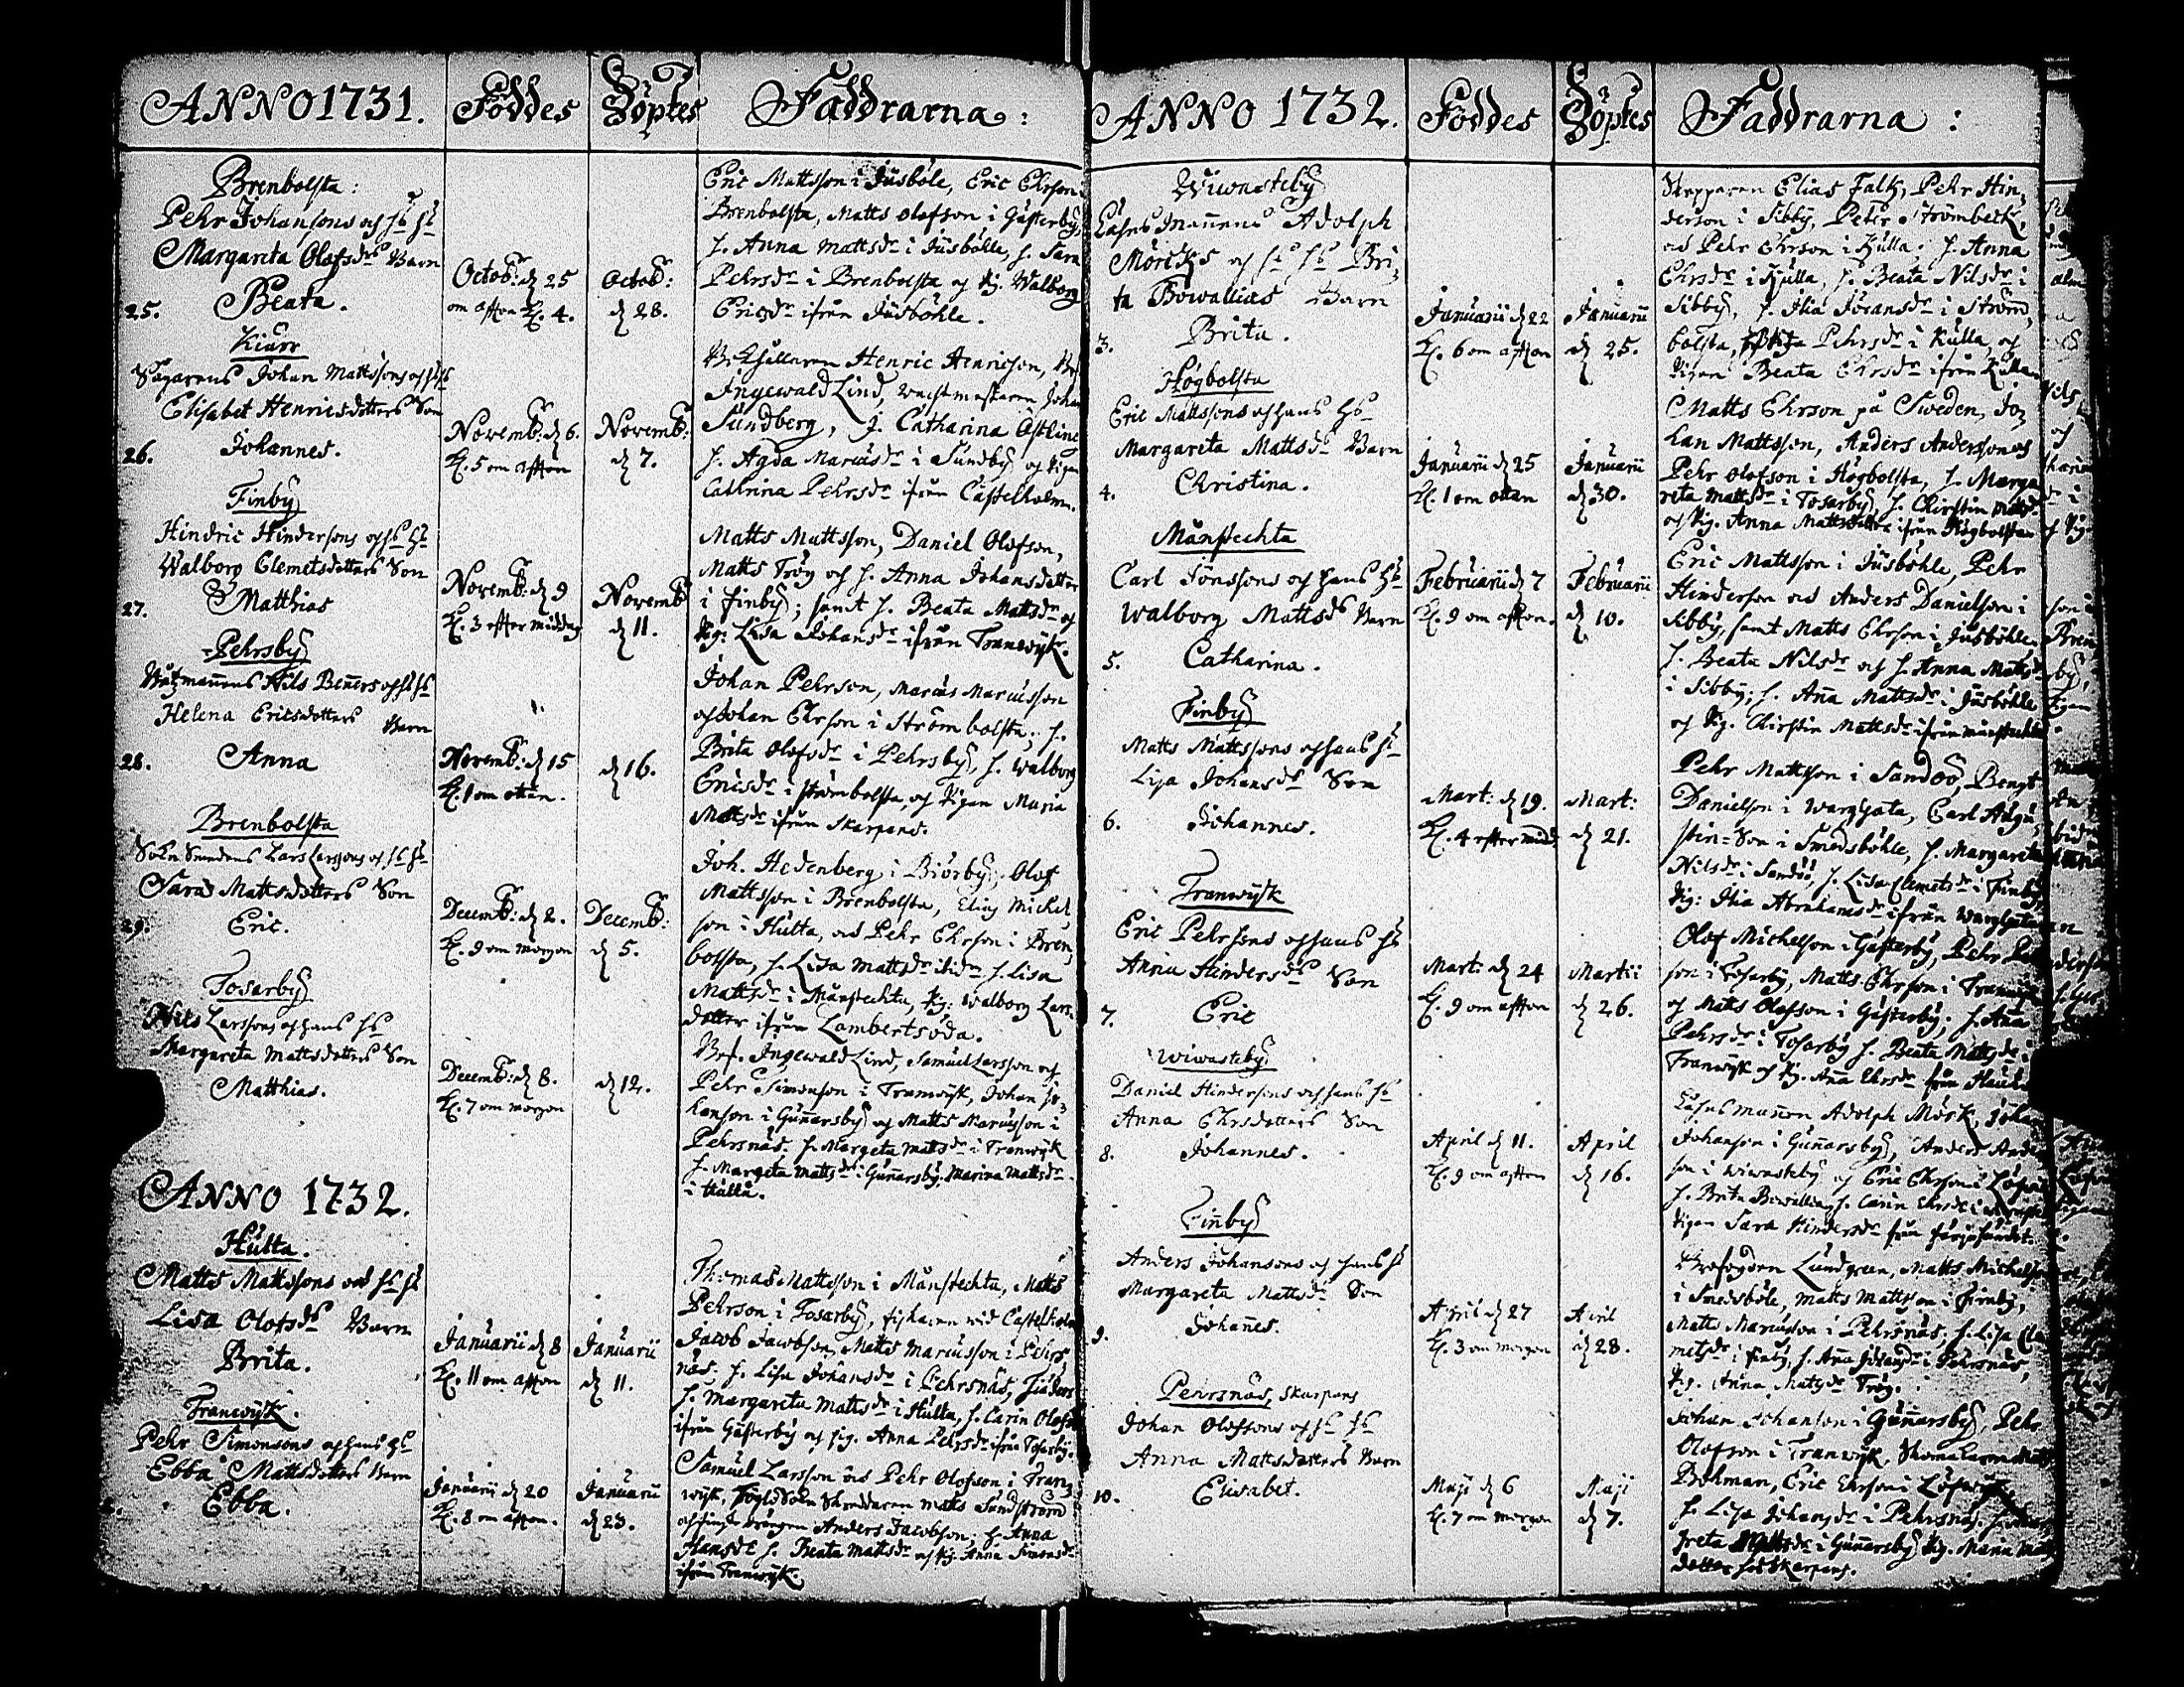 ANNO 1731.
Föddes
Döptes
Faddrarna:
Brenbolsta:
Pehr Johansons och hs hu
Margareta Olofsdr Barn
25. Beata.
Octobr: d 25
om afton Kl. 4.
Octob:
d 28.
Eric Mattsson i Jusböle, Eric Ehrson
Brenbolsta, Matts Olofson i Gästerby,
h. Anna Mattsdr i Jusbölle, h. Sara
Pehrsdr i Brenbolsta og Pig. Walborg
Ericsdr ifrån Jusböhle.
Kiärr
Johan Mattssons och hs hu
Elisabet Henricsdotters Son
26. Johannes.
Novemb: d 6.
Kl. 5 om afton
Novemb:
d 7.
Henric Henricson,
Ingewald Lind, wachtmestaren Johan
Sundberg, J. Catharina Östling
h. Agda Marcusdr i Sundby og Pigan
Cathrina Pehrsdr ifrån Castelholm.
Finby
Hindric Hindersons och hs hu
Walborg Clemetsdotters Son
27. Matthias
Novemb: d 9
Kl. 3 efter middag
Novemb
d 11.
Matts Mattsson, Daniel Olofson,
Matts Tröy och h. Anna Johansdotter
i Finby; samt h. Beata Mattsdr og
Pig: Lisa Johansdr ifrån Tranwijk.
Pehrsby
Båtzmannens Nils Benners och hs hu
Helena Ericsdotters Barn
28. Anna
Novemb: d 15
Kl. 1 om ottan.
d 16.
Johan Pehrson, Marcus Marcusson
och Johan Ehrson i Strömbolsta; h.
Brita Olofsdr i Pehrsby, h. Walborg
Ericsdr i Strömbolsta, og Pigan Maria
Mattsdr ifrån Skarpans.
Brenbolsta
Lars Larssons och hs hu
Saras Mattsdotters Son
29. Eric.
Decemb: d 2.
Kl. 9 om morgon
Decemb:
d 5.
Joh. Hedenberg i Biörby, Olof
Mattsson i Brenbolsta, Elias Michel
son i Hulta, och Pehr Ehrson i Bren
bolsta, h. Lisa Mattsdr ibidm h. Lisa
Mattsdr i Månstechta, Pig: Walborg Lars
dotter ifrån Lambertsöda.
Tosarby
Nils Larssons och hans hu
Margareta Mattsdotters Son
Matthias.
Decemb: d 8.
Kl. 7 om morgon
d 12.
Ingewald Lind, Samuel Larsson og
Pehr Simonson i Tranwijk, Johan Jo
hanson i Gunnarsby og Matts Marcusson i
Pehrsnäs. h. Margeta Mattsdr i Tranwijk
h. Margeta Mattsdr i Gunnarsby. Marina Mattsdr
i Kulla.
ANNO 1732.
Hulta.
Matts Mattssons och hs hu
Lisa Olofsdr Barn
Brita.
Januarii d 8
Kl. 11 om afton
Januarii
d 11.
Thomas Mattsson i Månstechta, Matts
Pehrson i Tosarby, fiskaren wid Castelholm
Jacob Jacobson, Matts Marcusson i Pehrs
näs, h. Lisa Johansdr i Pehrsnäs,
h. Margareta Mattsdr i Hulta, h. Carin Olofsdr
ifrån Gästerby och pig. Anna Pehrsdr ifrån Tosarby.
Tranwijk.
Pehr Simonsons och hans hu
Ebba Mattsdotters Barn
Ebba.
Januarii d 20
Kl. 8 om afton.
Januarii
d 23.
Samuel Larsson och Pehr Olofson i Tran
wijk, Skreddaren Matts Sundström
drängen Anders Jacobson; h. Anna
Hansdr h. Beata Mattsdr och pig. Anna Simonsdr
ifrån Tranwijk.
ANNO 1732.
Föddes
Döptes
Faddrarna:
Wiwasteby
Adolph
Mörcks och hs hu Bri
ta Bowallias Barn
3. Brita.
Januarii d 22
Kl. 6 om afton
Januarii
d 25.
Skepparen Elias Falk, Pehr Hin
derson i Sibby, Peter Strömbeck,
och Pehr Ehrson i Kulla; h. Anna
Ehrsdr i Kulla, h. Beata Nilsdr i
Sibby, h. Ilia Johansdr i Ström
bolsta, Pehrsdr i Kulla, og
Pigan Beata Ehrsdr ifrån Kulla.
Högbolsta
Eric Mattssons och hans hu
Margareta Mattsdr Barn
4. Christina.
Januarii d 25
Kl. 1 om ottan
Januarii
d 30.
Matts Ehrson på Sweden, Jo
han Mattsson, Anders Andersson og
Pehr Olofson i Högbolsta, h. Marga
reta Mattsdr i Tosarby, h. Chirstin
och Pig. Anna Mattsdotter ifrån Högbolsta
Månstechta
Carl Jönssons och hans hu
Walborg Mattsdr Barn
5. Catharina.
Februarii d 7
Kl. 9 om afton.
Februarii
d 10.
Eric Mattsson i Jusböhle, Pehr
Hinderson och Anders Danielson i
Sibby, samt Matts Ehrson i Jusböhle
h. Beata Nilsdr og h. Anna Mattsdr
i Sibby; h. Anna Mattsdr i Jusböhle
och Pig. Chirstin Mattsdr ifrån Månstechta
Finby
Matts Mattssons och hans hu
Lisa Johansdr Son
6. Johannes.
Mart: d 19.
Kl. 4 efter mid
Mart:
d 21.
Pehr Mattson i Sandöö, Bengt
Danielson i Wargsata, Carl Augu
stin-Son i Smedsböhle, h. Margareta
Nilsdr i Sandöö, h. Lisa Clemetsdr i Finby,
Pig: Ilia Abrahamsdr ifrån Wargsata
Tranwijk
Eric Pehrsons och hans hu
Anna Hindersdr Son
7. Eric
Mart: d 24
Kl. 9 om afton
Martii
d 26.
Olof Michelson i Gästerby, Pehr
son i Tosarby, Matts Ehrson i Tranwijk
og Matts Olofson i Gästerby; h. Anna
Pehrsdr i Tosarby h. Beata Mattsdr i
Tranwijk og Pig. Anna Ehrsdr från
Wiwasteby
Daniel Hindersons och hans hu
Anna Ehrsdotters Son
8. Johannes.
April d 11.
Kl. 9 om afton
April
d 16.
Adolph Mörck, Johan
Johanson i Gunnarsby, Anders Ander
son i Wiwasteby og Eric Ehrson i
h. Brita Bowallia, h. Carin Ehrsdr i
Pigan Sara Hindersdr från
Finby
Anders Johansons och hans hu
Margareta Mattsdr Son
9. Johannes.
April d 27
Kl. 3 om morgon
April
d 28.
Lundgreen, Matts Michelson
i Smedsböle, Matts Mattson i Finby,
Matts Marcusson i Pehrsnäs, h. Lisa Cle
metsdr i Finby, h. Anna Johansdr i Pehrsnäs,
Pig. Anna Matsdr Tröy.
Pehrsnäs, Skarpans
Johan Olofssons och hs hu
Anna Mattsdotters Barn
10. Elisabet.
Maji d 6
Kl. 7 om morgon
Maji
d 7.
Johan Johanson i Gunnarsby, Pehr
Olofson i Tranwijk, Skomakaren
Bohman, Eric Ehrson i
h. Lisa Johansdr i Pehrsnäs,
greta Mattsdr i Gunnarsby Pig. Maria
dotter Skarpans.